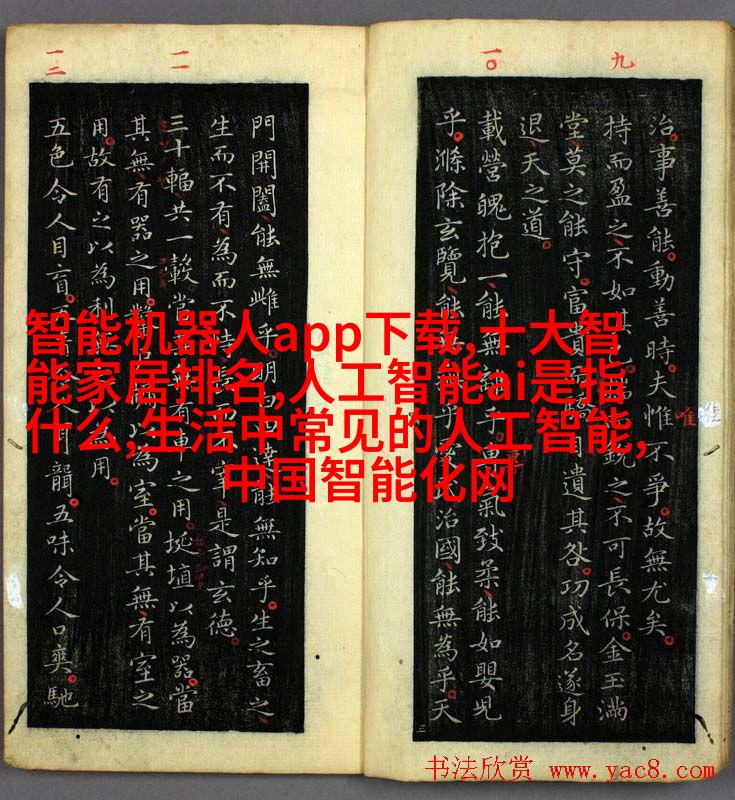 九
一〇
一一
一二
治事善能動善時夫惟不爭故無尤矣
唯
持而盈之不如其已 銳之不可長保金玉滿
堂莫之能守富貴 自遺其咎功成名遂身
退天之道
載營魄抱一能無 乎 氣致柔能如嬰兒
乎滌除玄覽能 乎 治國能無為乎天
門開闔能無雌乎明白四 能無知乎生之畜之
生而不有為而不恃 宰是謂玄德
三十輻共一轂當 無有車之用埏埴以為器當
其無有器之用鑿 以為室當其無有室之
用故有之以為利 用
五色令人目盲五 人耳聾五味令人口爽馳
智能机器人app下载,十大智
能家居排名,人工智能ai是指
什么,生活中常见的人工智能,
中国智能化网
书法欣赏 www.yac8.com